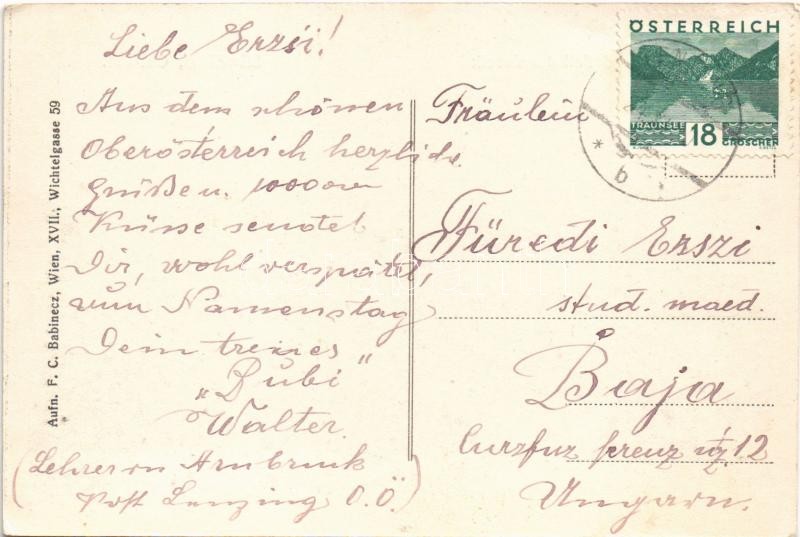 Liebe Erzsi!
Aus dem schönen
Oberösterreich herzliche
Grüße u. 100000
Küsse sendet
Dir, wohl verspätet,
zum Namenstag
Dein treues
"Bubi"
Walter
(Lehrer in
Post Lenzing O.Ö.)
Aufn. F. C. Babinecz, Wien, XVII., Wichtelgasse 59
ÖSTERREICH
TRAUNSEE 18 GROSCHEN
* b
Fräulein
Füredi Erzsi
stud. maed.
Baja
12
Ungarn.